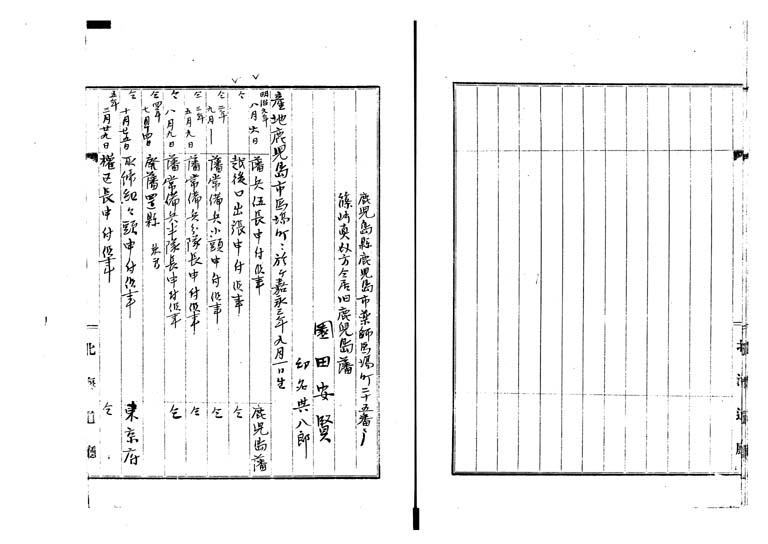 鹿児島縣鹿児島市薬師馬場町二十五番戸
篠崎真叔方今居旧鹿児島藩
園田安賢
幼名共八郎
産地鹿児島市馬場町ニ於テ嘉永三年九月一日生
明治元年八月六日 藩兵伍長申付候事 鹿児島藩
仝 越後口出張申付候事 仝
仝二年九月 藩常備兵小頭申付候事 仝
仝三年五月九日 藩常備兵分隊長申付候事 仝
仝八月九日 藩常備兵半隊長申付候事 仝
仝四年七月十四日 廃藩置縣
仝十月廿五日 取締組々頭申付候事 東京府
五年二月廿九日 権区長申付候事 仝
北海道廳
北海道廳